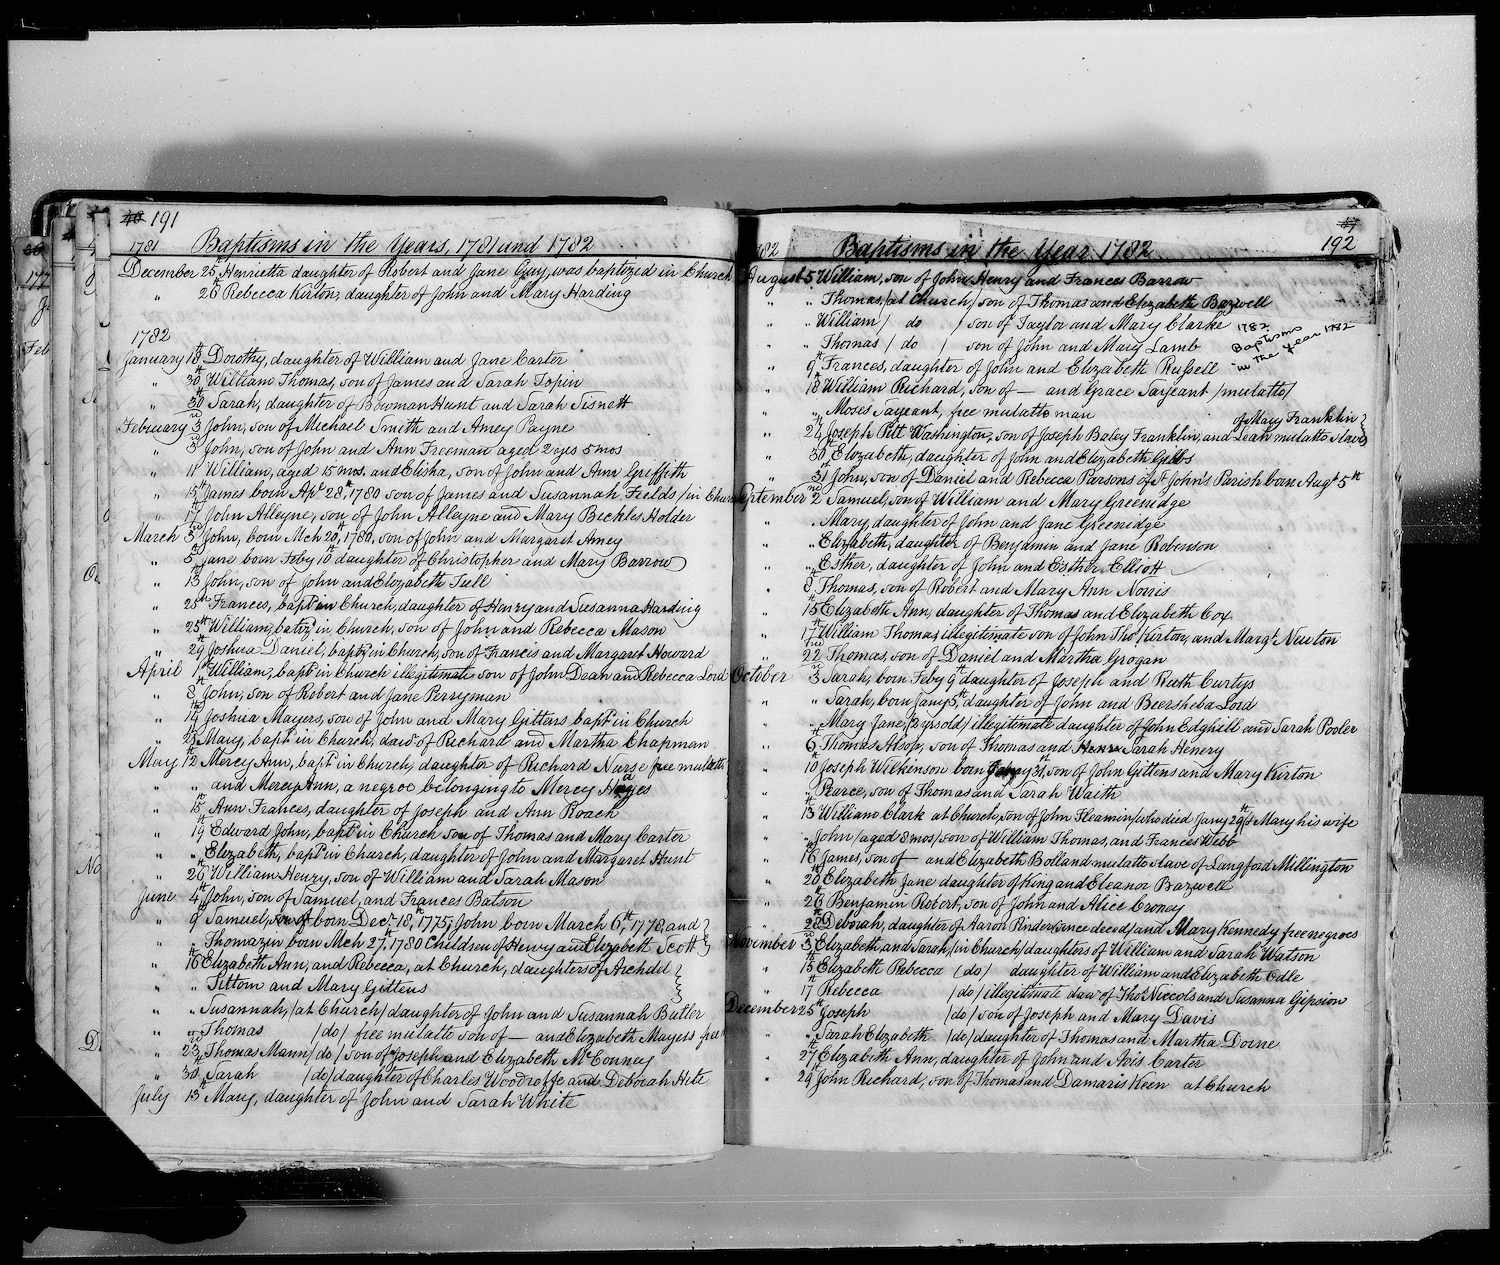 40 191
1781 Baptisms in the Years, 1781 and 1782
December 25th Henrietta daughter of Robert and Jane Gay, was baptized in Church
" 26th Rebecca Kirton, daughter of John and Mary Harding
1782
January 18th Dorothy, daughter of William and Jane Carter
" 30th William Thomas, son of James and Sarah Topin
" 30th Sarah, daughter of Bowman Hunt and Sarah Tisnett
February 3rd John, son of Michael Smith and Amey Payne
" 3rd John, son of John and Ann Freeman aged 2 yes 5 mos
" 11th William, aged 15 mos. and Elisha, son of John and Ann Griffith
" 15th James born Apl 28th, 1780 son of James and Susannah Fields / in Church
" 17th John Alleyne, son of John Alleyne and Mary Beckles Holder
March 3rd John, born Mch 20th, 1780, son of John and Margaret Amey
" 5th Jane born Feby 10th daughter of Christopher and Mary Barrow
" 13th John, son of John and Elizabeth Tull
" 25th Frances, bapt in Church, daughter of Henry and Susanna Harding
" 25th William, in Church, son of John and Rebecca Mason
" 29th Joshua Daniel, bapt in Church, son of Francis and Margaret Howard
April 1st William, bapt in Church illegitimate son of John Dean and Rebecca Lord
" 8th John, son of Robert and Jane Perryman
" 14th Joshua Mayers, son of John and Mary Gittens bapt in Church
" 23rd Mary, bapt in Church, daur of Richard and Martha Chapman
May 12th Mercy Ann, bapt in Church, daughter of Richard Nurse free mulatto
" " and Mercy Ann, a negroe belonging to Mercy Hayes
" 15th Ann Frances, daughter of Joseph and Ann Roach
" 19th Edward John, bapt in Church son of Thomas and Mary Carter
" " Elizabeth, bapt in Church, daughter of John and Margaret Hunt
" 26th William Henry, son of William and Sarah Mason
June 4th John, son of Samuel, and Frances Batson
" 9th Samuel, son of born Decr 18th, 1775, John born March 6th, 1778, and }
" Thomazin born Mch 27th, 1780 Children of Henry and Elizabeth Scott }
" 16th Elizabeth Ann, and Rebecca, at Church, daughters of Archdel }
" " Tittom and Mary Gittens }
" " Susannah, / at Church / daughter of John and Susannah Butler
" " Thomas / do / free mulatto son of — and Elizabeth Mayers free
" 23rd Thomas Mann / do / son of Joseph and Elizabeth McConney
" 30th Sarah / do / daughter of Charles Woodroffe and Deborah Hite
July 13th Mary, daughter of John and Sarah White
192
82 Baptisms in the Year 1782
August 5 William, son of John Henry and Frances Barrow
" " Thomas, / at Church / son of Thomas and Elizabeth Bazwell
" " William / do / son of Taylor and Mary Clarke
" " Thomas / do / son of John and Mary Lamb
1782 Baptisms in the year 1782
" 9th Frances, daughter of John and Elizabeth Russell
" 18th William Richard, son of — and Grace Sargeant / mulatto /
" " Moses Sargeant, free mulatto man
of Mary Franklin }
" 24th Joseph Pitt Washington, son of Joseph Baley Franklin, and Leah mulatto slave }
" 30th Elizabeth, daughter of John and Elizabeth Gibbs
" 31st John, son of Daniel and Rebecca Parsons of St John's Parish born Augt 5th
September 2nd Samuel, son of William and Mary Greenidge
" " Mary, daughter of John and Jane Greenidge
" " Elizabeth, daughter of Benjamin and Jane Robinson
" " Esther, daughter of John and Esther Elliott
" 8th Thomas, son of Robert and Mary Ann Norris
" 15th Elizabeth Ann, daughter of Thomas and Elizabeth Cox
" 17th William Thomas, illegitimate son of John Thos Kirton, and Margt Newton
" 22nd Thomas, son of Daniel and Martha Grogan
October 3rd Sarah, born Feby 9th daughter of Joseph and Ruth Curtys
" " Sarah, born Jany 5th, daughter of John and Beersheba Lord
" " Mary Jane, / 3 yrs old / illegitimate daughter of John Edghill and Sarah Pooler
" 6th Thomas Alsop, son of Thomas and Sarah Henery
" 10th Joseph Wilkinson born Jany 31st, son of John Gittens and Mary Kirton
" " Pearce, son of Thomas and Sarah Waith
" 13th William Clark at Church, son of John Fleamin / who died Jany 29th / & Mary his wife
" " John / aged 8 mos / son of William Thomas, and Frances Webb
" 16th James, son of — and Elizabeth Bolland mulatto slave of Langford Millington
" 20th Elizabeth Jane daughter of King and Eleanor Bazwell
" 26th Benjamin Robert, son of John and Alice Croney
" 28th Deborah, daughter of Aaron Pinder / since deced / and Mary Kennedy free negroes
November 3rd Elizabeth, and Sarah, / in Church / daughters of William and Sarah Watson
" 15th Elizabeth Rebecca / do / daughter of William and Elizabeth Odle
" 17th Rebecca / do / illegitimate daur of Thos Niccols and Susanna Gipsion
December 25th Joseph / do / son of Joseph and Mary Davis
" " Sarah Elizabeth / do / daughter of Thomas and Martha Dorne
" 27th Elizabeth Ann, daughter of John and Avis Carter
" 29th John Richard, son of Thomas and Damaris Keen at Church